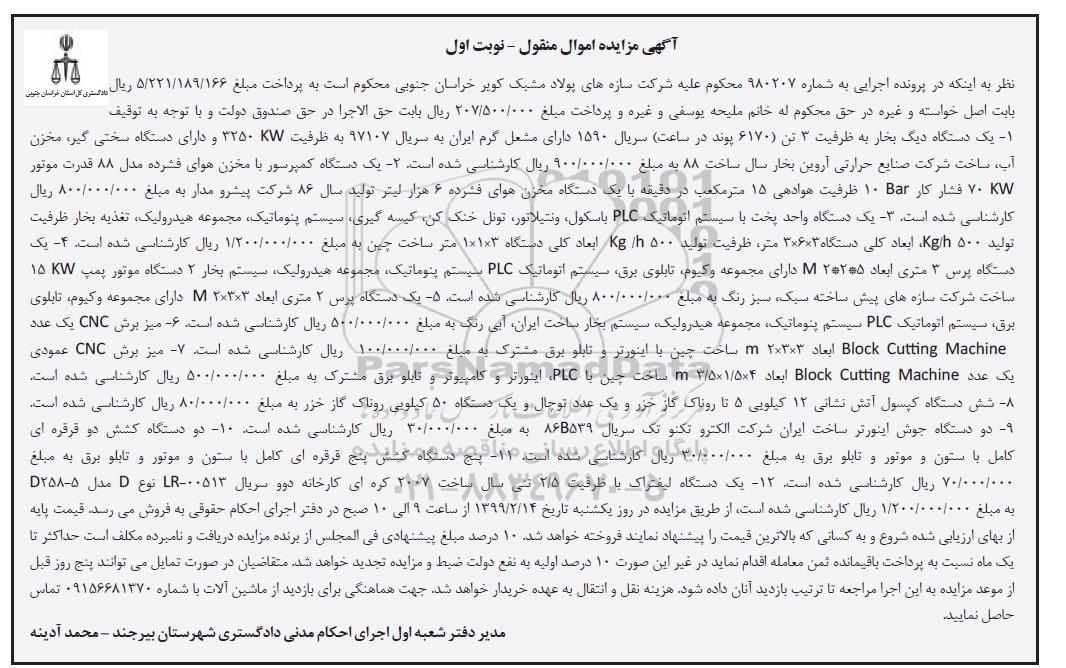 آگهی مزایده اموال منقول - نوبت اول
دادگستری کل استان خراسان جنوبی
نظر به اینکه در پرونده اجرایی به شماره ۹۸۰۲۰۷ محکوم علیه شرکت سازه های پولاد مشبک کویر خراسان جنوبی محکوم است به پرداخت مبلغ ۵/۲۲۱/۱۸۹/۱۶۶ ریال
بابت اصل خواسته و غیره در حق محکوم له خانم ملیحه یوسفی و غیره و پرداخت مبلغ ۲۰۷/۵۰۰/۰۰۰ ریال بابت حق الاجرا در حق صندوق دولت و با توجه به توقیف
۱- یک دستگاه دیگ بخار به ظرفیت ۳ تن (۶۱۷۰ پوند در ساعت) سریال ۱۵۹۰ دارای مشعل گرم ایران به سریال ۹۷۱۰۷ به ظرفیت ۳۲۵۰ KW و دارای دستگاه سختی گیر، مخزن
آب، ساخت شرکت صنایع حرارتی آروین بخار سال ساخت ۸۸ به مبلغ ۹۰۰/۰۰۰/۰۰۰ ریال کارشناسی شده است. ۲- یک دستگاه کمپرسور با مخزن هوای فشرده مدل ۸۸ قدرت موتور
۷۰ KW فشار کار ۱۰ Bar ظرفیت هوادهی ۱۵ مترمکعب در دقیقه با یک دستگاه مخزن هوای فشرده ۶ هزار لیتر تولید سال ۸۶ شرکت پیشرو مدار به مبلغ ۸۰۰/۰۰۰/۰۰۰ ریال
کارشناسی شده است. ۳- یک دستگاه واحد پخت با سیستم اتوماتیک PLC باسکول، ونتیلاتور، تونل خنک کن، کیسه گیری، سیستم پنوماتیک، مجموعه هیدرولیک، تغذیه بخار ظرفیت
تولید ۵۰۰ Kg/h، ابعاد کلی دستگاه۳×۶×۳ متر، ظرفیت تولید ۵۰۰ Kg /h ابعاد کلی دستگاه ۳×۱×۱ متر ساخت چین به مبلغ ۱/۲۰۰/۰۰۰/۰۰۰ ریال کارشناسی شده است. ۴- یک
دستگاه پرس ۳ متری ابعاد ۵*۲*۲ M دارای مجموعه وکیوم، تابلوی برق، سیستم اتوماتیک PLC سیستم پنوماتیک، مجموعه هیدرولیک، سیستم بخار ۲ دستگاه موتور پمپ ۱۵ KW
ساخت شرکت سازه های پیش ساخته سبک، سبز رنگ به مبلغ ۸۰۰/۰۰۰/۰۰۰ ریال کارشناسی شده است. ۵- یک دستگاه پرس ۲ متری ابعاد ۳×۳×۲ M دارای مجموعه وکیوم، تابلوی
برق، سیستم اتوماتیک PLC سیستم پنوماتیک، مجموعه هیدرولیک، سیستم بخار ساخت ایران، آبی رنگ به مبلغ ۵۰۰/۰۰۰/۰۰۰ ریال کارشناسی شده است. ۶- میز برش CNC یک عدد
Block Cutting Machine ابعاد ۳×۳×۲ m ساخت چین با اینورتر و تابلو برق مشترک به مبلغ ۱۰۰/۰۰۰/۰۰۰ ریال کارشناسی شده است. ۷- میز برش CNC عمودی
یک عدد Block Cutting Machine ابعاد ۴×۱/۵×۳/۵ m ساخت چین با PLC، اینورتر و کامپیوتر و تابلو برق مشترک به مبلغ ۵۰۰/۰۰۰/۰۰۰ ریال کارشناسی شده است.
۸- شش دستگاه کپسول آتش نشانی ۱۲ کیلویی ۵ تا روناک گاز خزر و یک عدد توچال و یک دستگاه ۵۰ کیلویی روناک گاز خزر به مبلغ ۸۰/۰۰۰/۰۰۰ ریال کارشناسی شده است.
۹- دو دستگاه جوش اینورتر ساخت ایران شرکت الکترو تکنو تک سریال ۸۶B۵۳۹ به مبلغ ۳۰/۰۰۰/۰۰۰ ریال کارشناسی شده است. ۱۰- دو دستگاه کشش دو قرقره ای
کامل با ستون و موتور و تابلو برق به مبلغ ۳۰/۰۰۰/۰۰۰ ریال کارشناسی شده است. ۱۱- پنج دستگاه کشش پنج قرقره ای کامل با ستون و موتور و تابلو برق به مبلغ
۷۰/۰۰۰/۰۰۰ ریال کارشناسی شده است. ۱۲- یک دستگاه لیفتراک با ظرفیت ۲/۵ تنی سال ساخت ۲۰۰۷ کره ای کارخانه دوو سریال LR-۰۰۵۱۳ نوع D مدل D۲۵۸-۵
به مبلغ ۱/۲۰۰/۰۰۰/۰۰۰ ریال کارشناسی شده است، از طریق مزایده در روز یکشنبه تاریخ ۱۳۹۹/۲/۱۴ از ساعت ۹ الی ۱۰ صبح در دفتر اجرای احکام حقوقی به فروش می رسد. قیمت پایه
از بهای ارزیابی شده شروع و به کسانی که بالاترین قیمت را پیشنهاد نمایند فروخته خواهد شد. ۱۰ درصد مبلغ پیشنهادی فی المجلس از برنده مزایده دریافت و نامبرده مکلف است حداکثر تا
یک ماه نسبت به پرداخت باقیمانده ثمن معامله اقدام نماید در غیر این صورت ۱۰ درصد اولیه به نفع دولت ضبط و مزایده تجدید خواهد شد. متقاضیان در صورت تمایل می توانند پنج روز قبل
از موعد مزایده به این اجرا مراجعه تا ترتیب بازدید آنان داده شود. هزینه نقل و انتقال به عهده خریدار خواهد شد. جهت هماهنگی برای بازدید از ماشین آلات با شماره ۰۹۱۵۶۶۸۱۳۷۰ تماس
حاصل نمایید.
مدیر دفتر شعبه اول اجرای احکام مدنی دادگستری شهرستان بیرجند - محمد آدینه
ParsNamadData
پایگاه اطلاع رسانی مناقصه و مزایده
۰۲۱-۸۸۳۴۹۶۷۰-۵